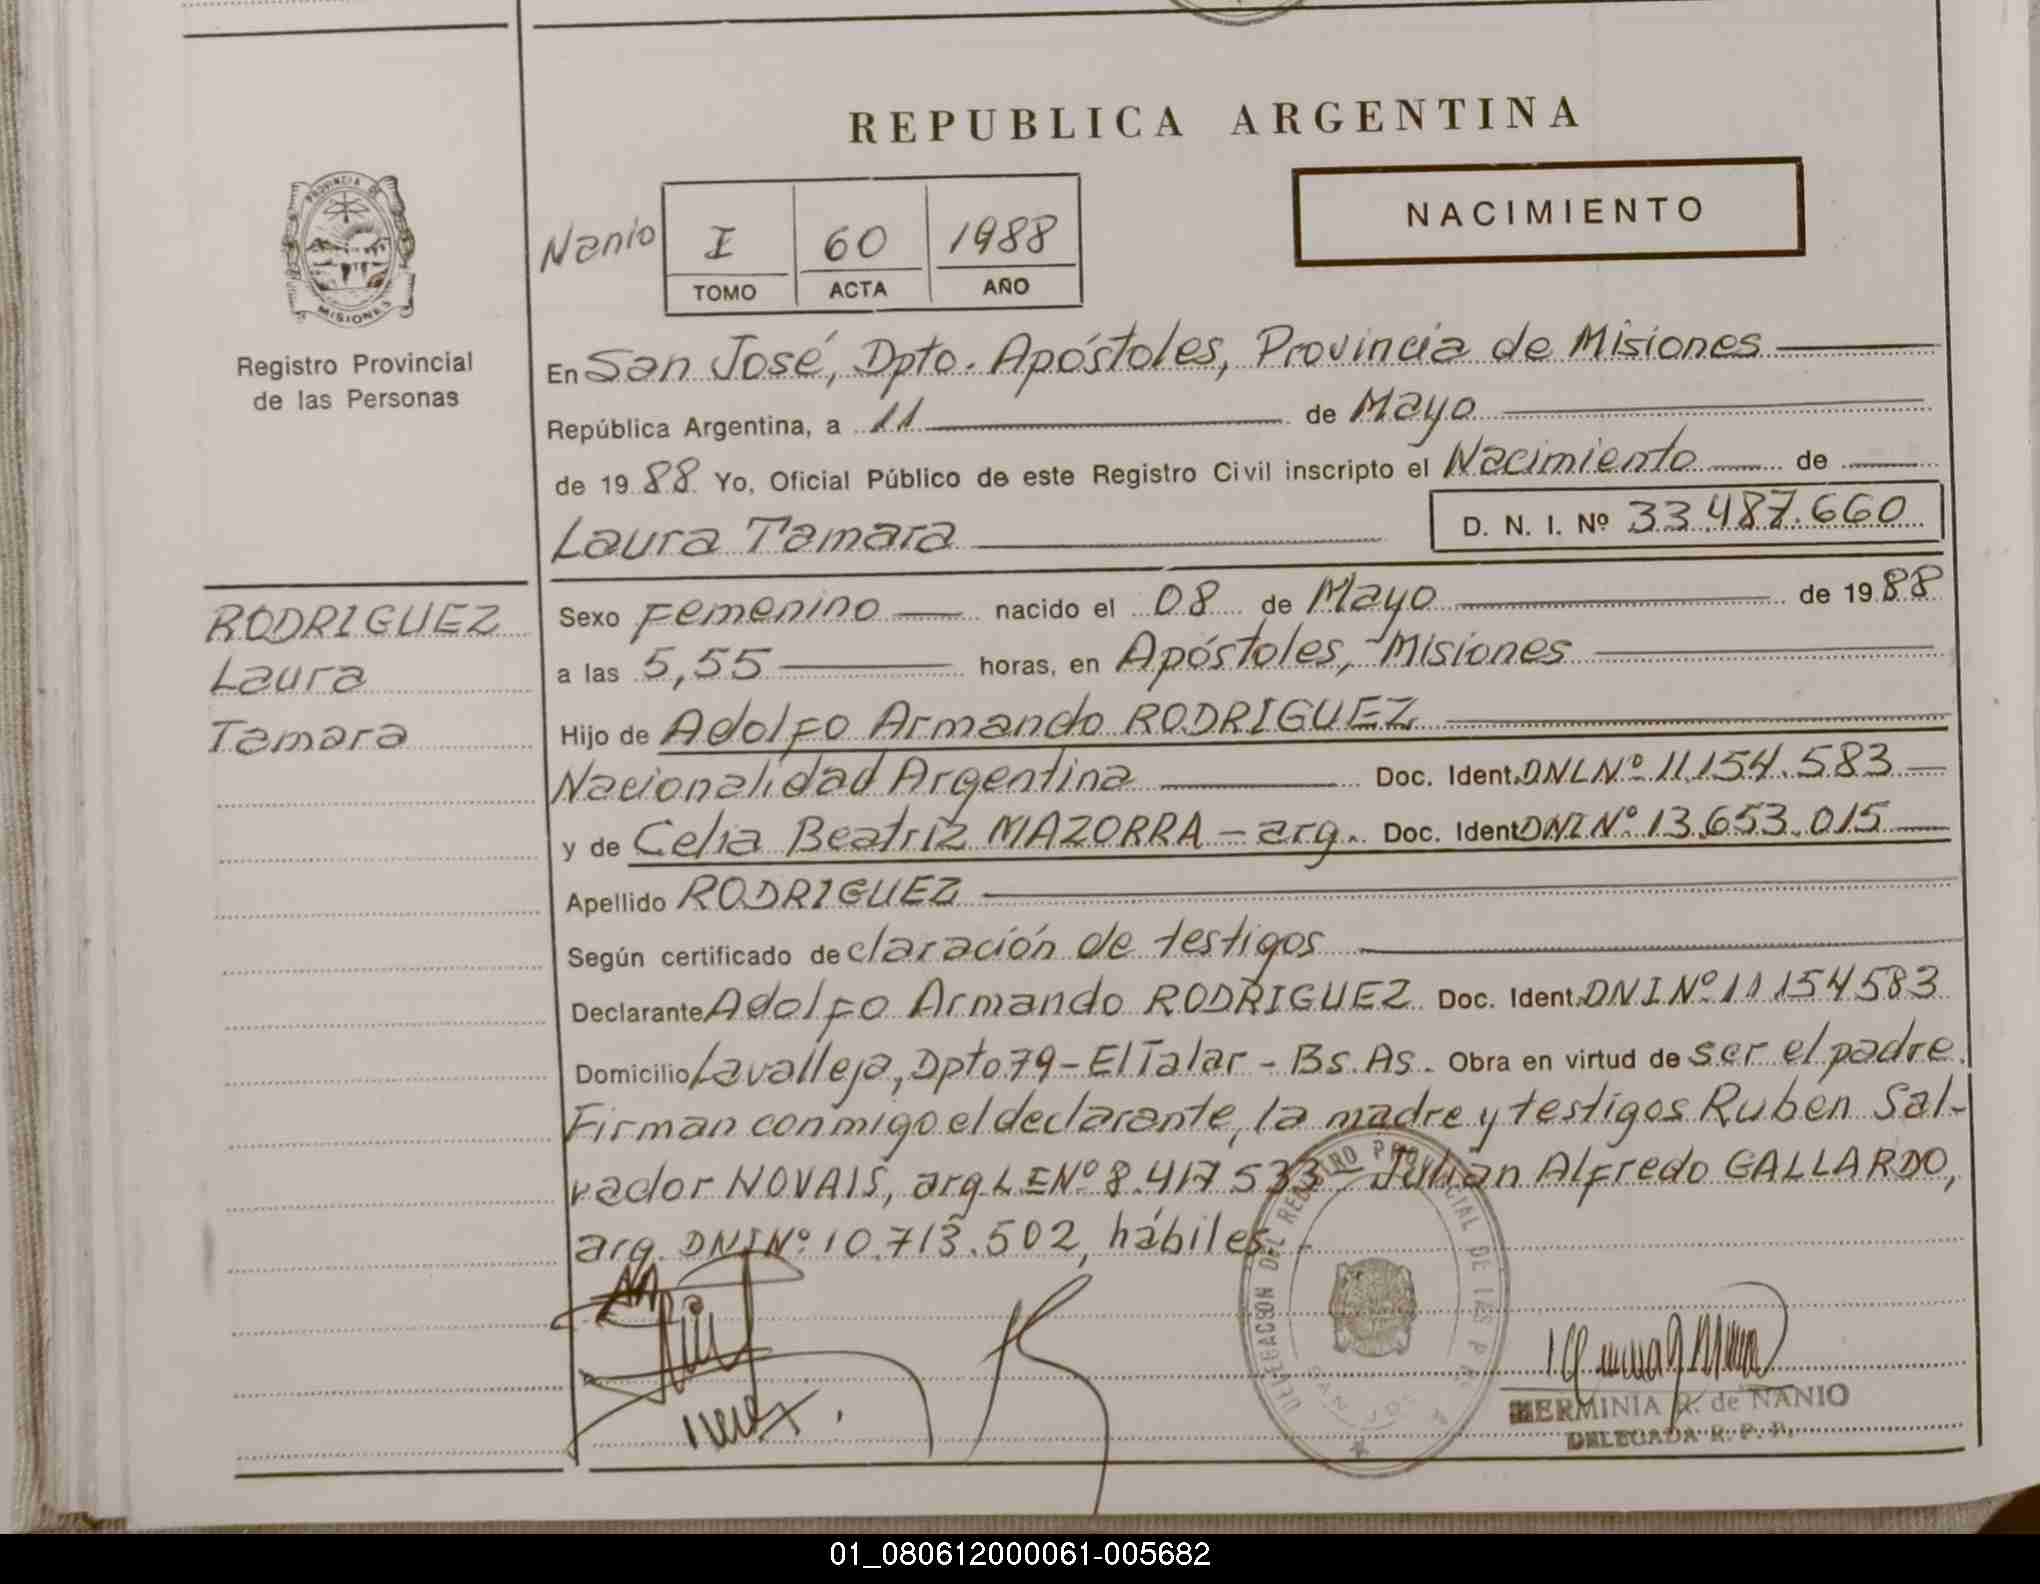 REPUBLICA ARGENTINA
NACIMIENTO
PROVINCIA DE
MISIONES
Registro Provincial
de las Personas
Nanio I 60 1988
TOMO ACTA AÑO
En San José, Dpto. Apóstoles, Provincia de Misiones
República Argentina, a 11 de Mayo
de 1988 Yo, Oficial Público de este Registro Civil inscripto el Nacimiento de
Laura Tamara D. N. I. Nº 33.487.660
RODRIGUEZ
Laura
Tamara
Sexo Femenino nacido el 08 de Mayo de 1988
a las 5,55 horas, en Apóstoles, Misiones
Hijo de Adolfo Armando RODRIGUEZ
Nacionalidad Argentina Doc. Ident. DNI Nº 11.154.583
y de Celia Beatriz MAZORRA - arg. Doc. Ident DNI Nº 13.653.015
Apellido RODRIGUEZ
Según certificado declaración de testigos
Declarante Adolfo Armando RODRIGUEZ Doc. Ident. DNI Nº 11 154 583
Domicilio Lavalleja, Dpto 79 - El Talar - Bs. As. Obra en virtud de ser el padre.
Firman conmigo el declarante, la madre y testigos Ruben Sal-
vador NOVAIS, arg. LE Nº 8.417.533 - Julian Alfredo GALLARDO,
arg. DNI Nº 10.713.502, hábiles.
DELEGACION DEL REGISTRO PROVINCIAL DE LAS
SAN JOSE
HERMINIA R. de NANIO
DELEGADA R. P. P.
01_080612000061-005682